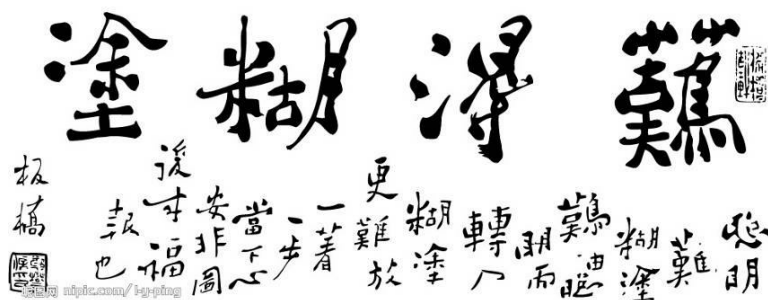 難得糊塗
聰明
難
糊塗
難由聰
明而
轉入
糊塗
更難放
一著
一步
當下心
安非圖
後來福
報也
板橋
昵图网 nipic.com/l-y-ping